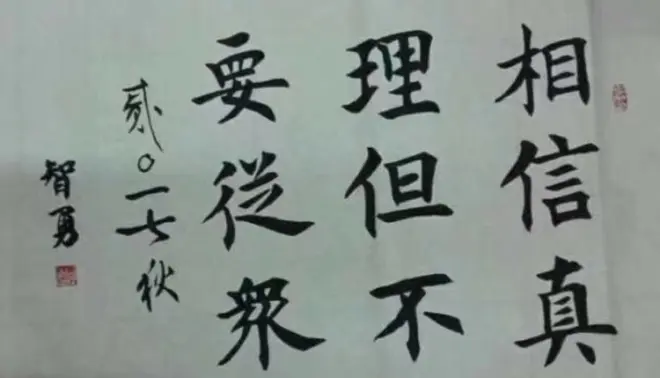 相信真
理但不
要從衆
贰○一七秋
智勇